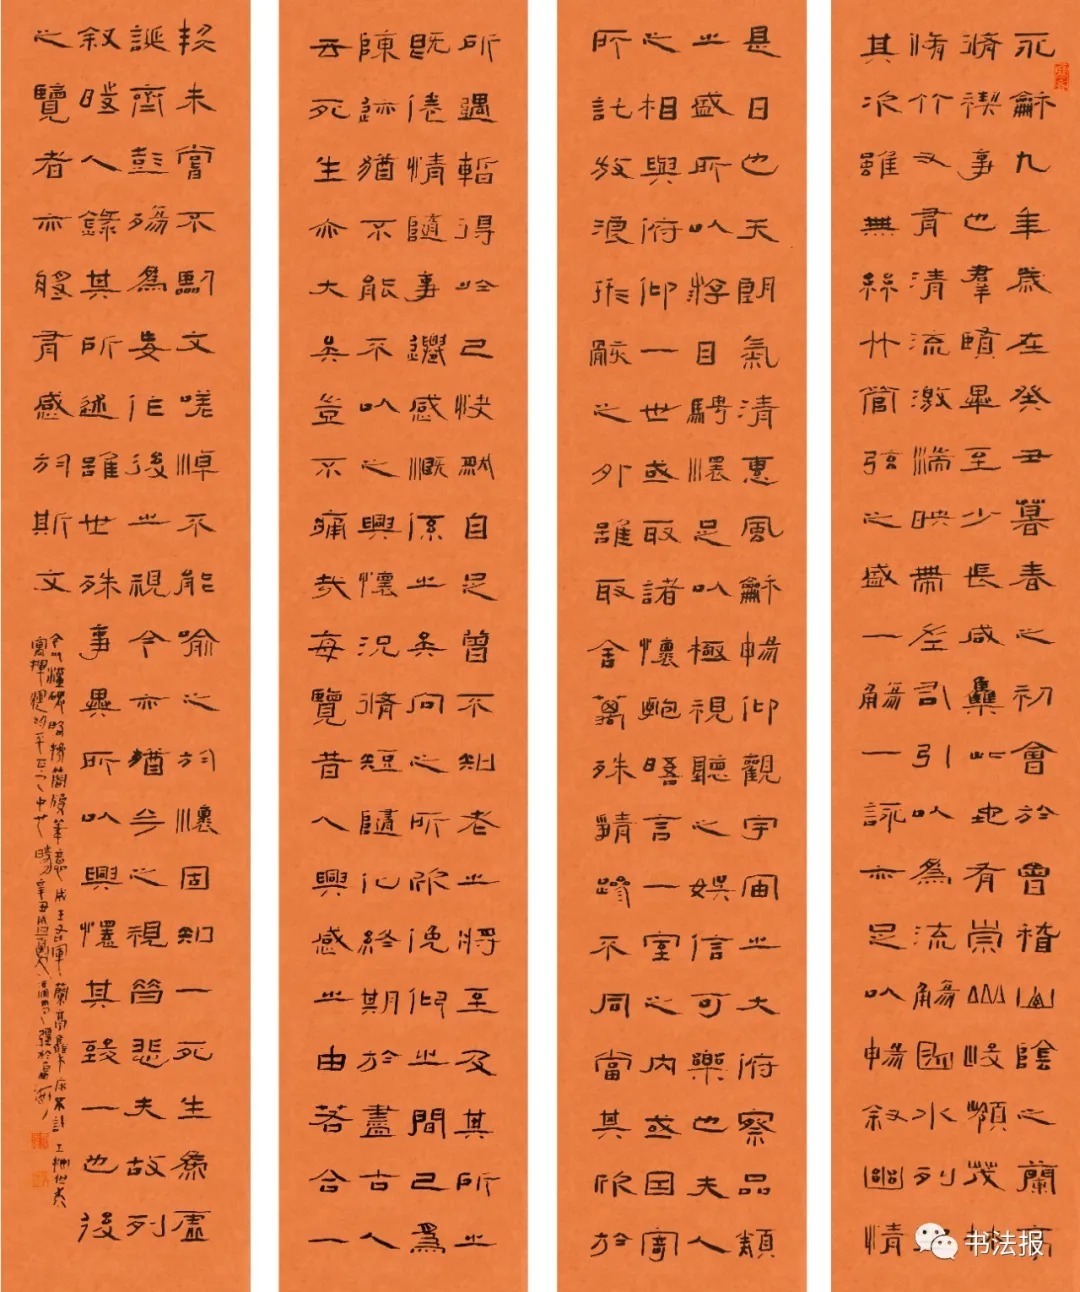 永龢九年歲在癸丑暮春之初會於會稽山陰之蘭亭
脩禊事也羣賢畢至少長咸集此地有崇山峻領茂林
脩竹又有清流激湍映帶左右引以為流觴曲水列
其次雖無絲竹管弦之盛一觴一詠亦足以暢敘幽情
是日也天朗氣清惠風龢暢仰觀宇宙之大俯察品類
之盛所以游目騁懷足以極視聽之娛信可樂也夫人
之相與俯仰一世或取諸懷抱晤言一室之內或因寄
所託放浪形骸之外雖取舍萬殊靜躁不同當其欣於
所遇暫得於己快然自足曾不知老之將至及其所之
既惓情隨事遷感慨係之矣向之所欣俛仰之間已為
陳迹猶不能不以之興懷況脩短隨化終期於盡古人
云死生亦大矣豈不痛哉每覽昔人興感之由若合一
契未嘗不臨文嗟悼不能喻之於懷固知一死生為虛
誕齊彭殤為妄作後之視今亦猶今之視昔悲夫故列
敘時人錄其所述雖世殊事異所以興懷其致一也後
之覽者亦將有感於斯文
书法报